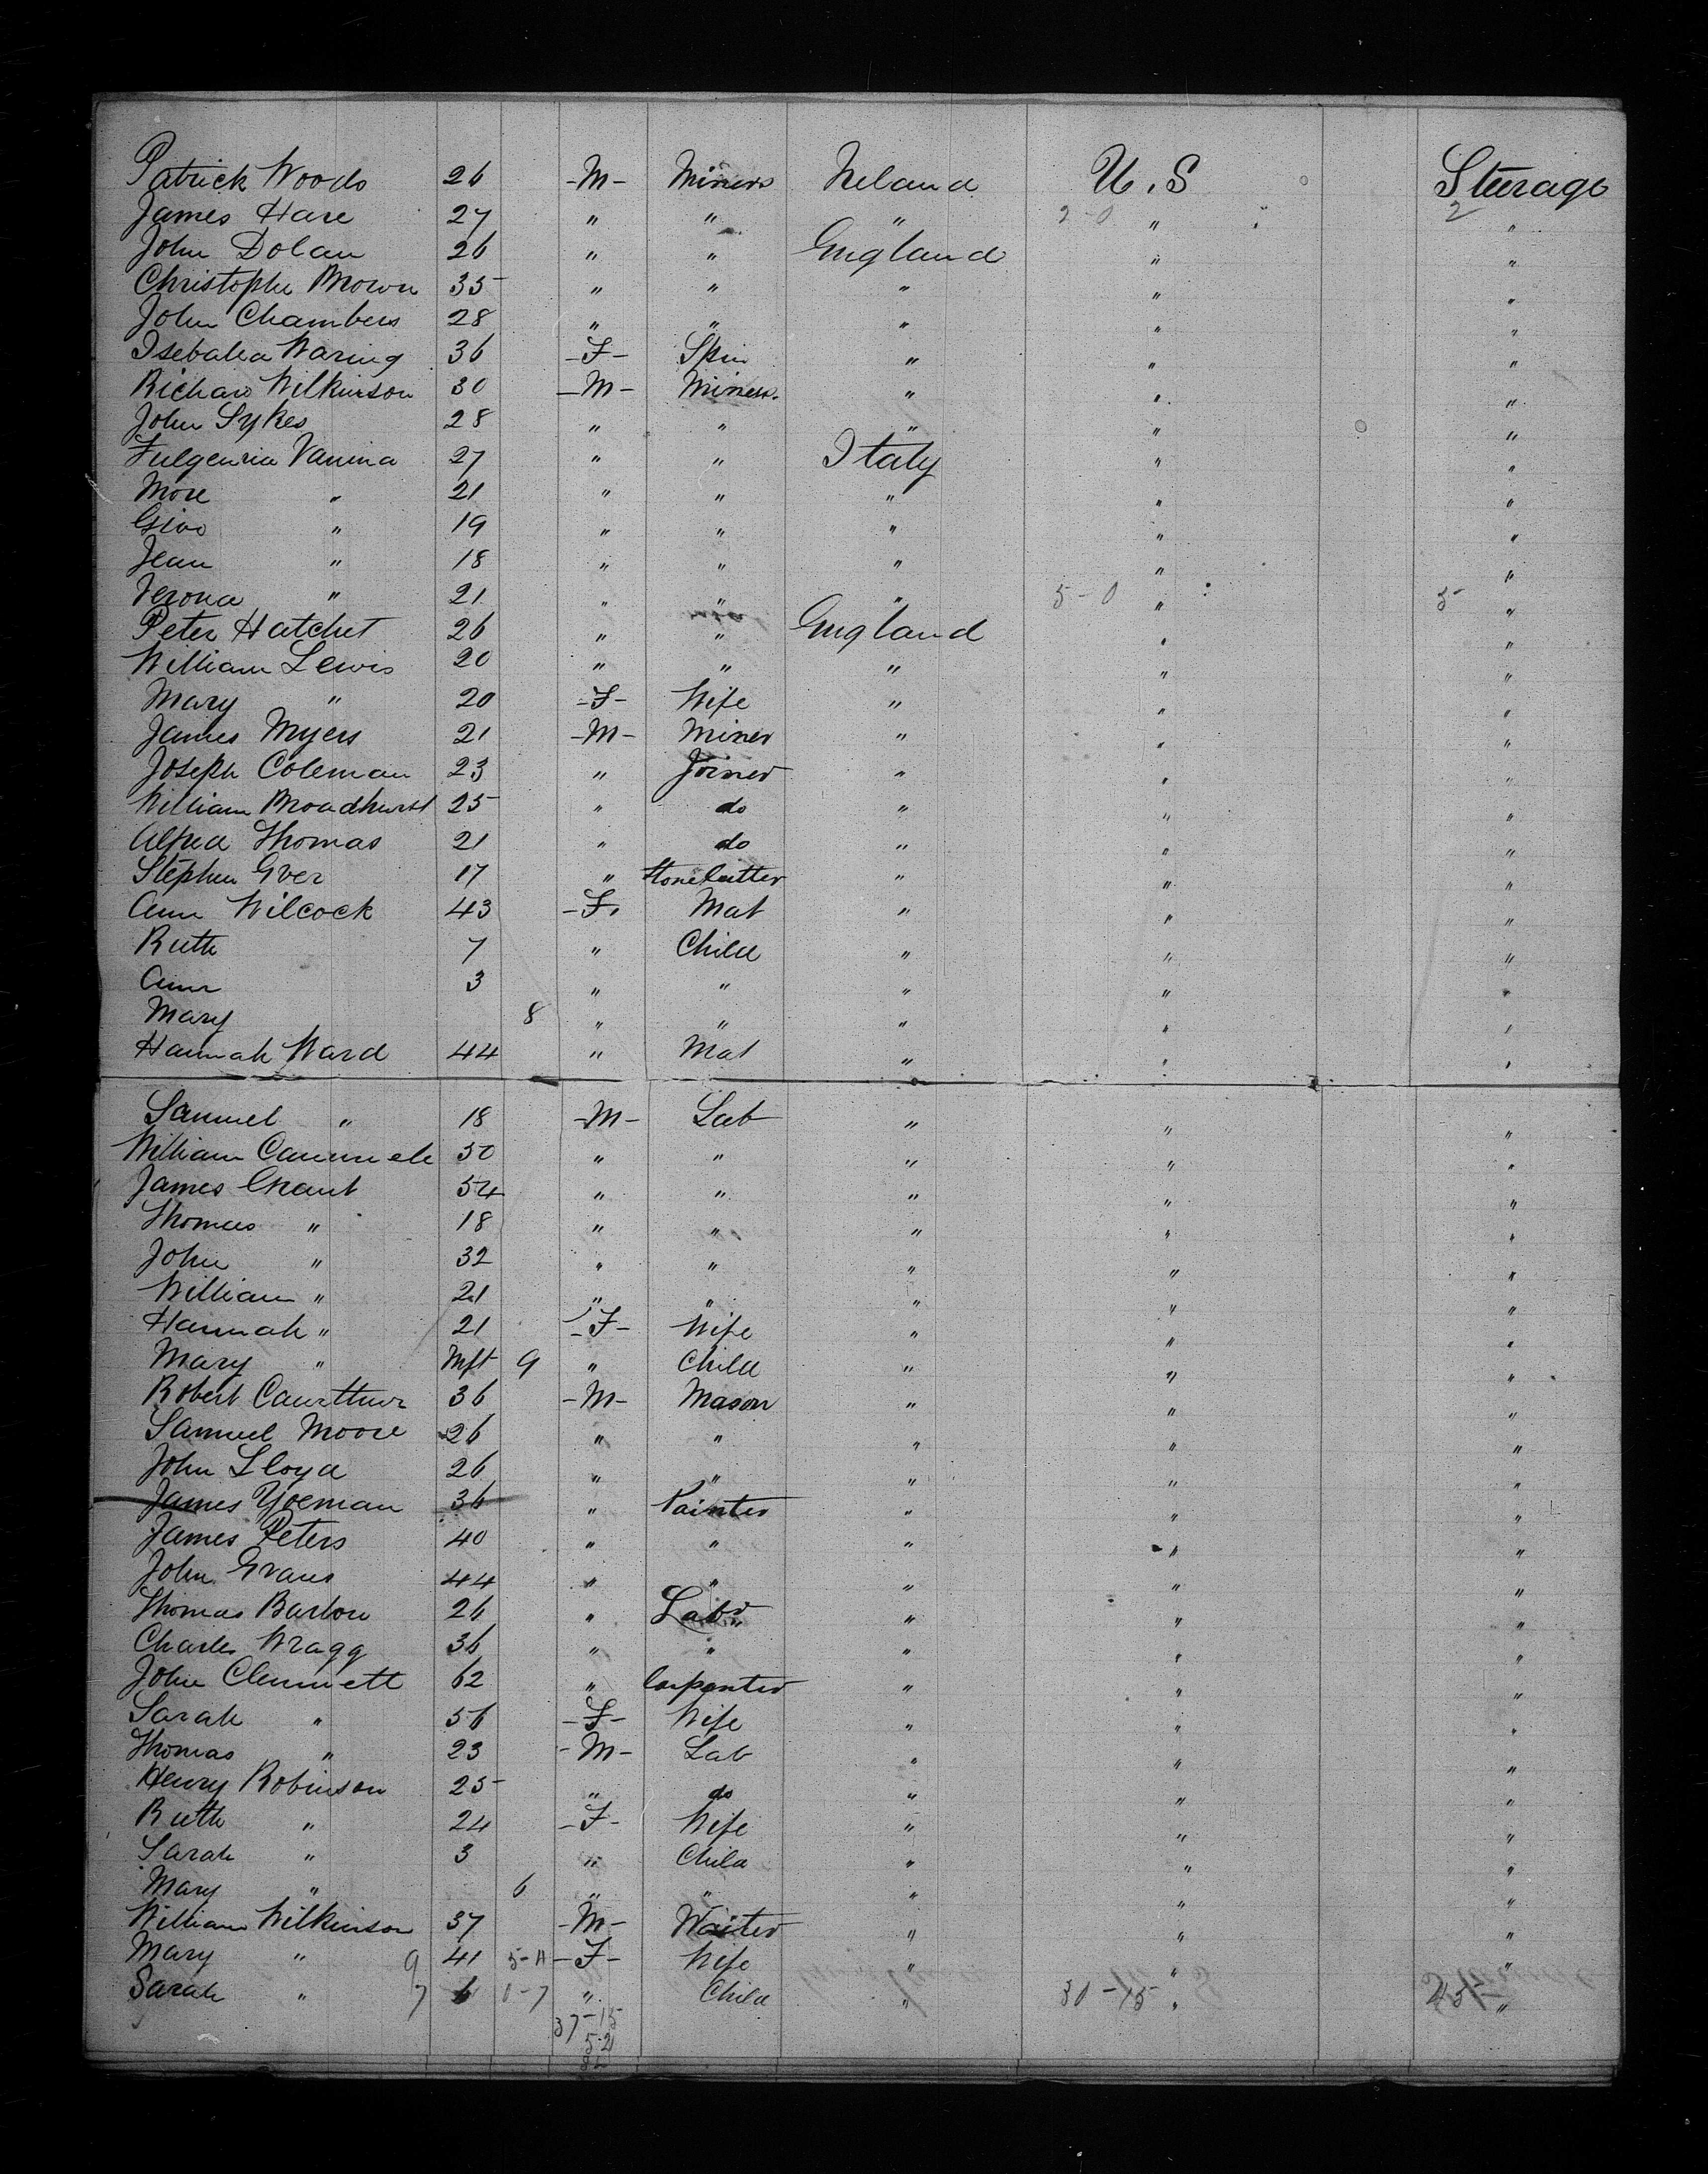 Patrick Woods 26 -M- Miners Ireland U.S Steerage
James Hare 27 " " " 2-0 " 2 "
John Dolan 26 " " England " "
Christophe Brown 35 " " " " "
John Chambers 28 " " " " "
Isebalea Waring 36 -F- Spin " " "
Richard Wilkinson 30 -M- Miners " " "
John Sykes 28 " " " " "
Fulgenria Vanina 27 " " Italy " "
More " 21 " " " " "
Givo " 19 " " " " "
Jean " 18 " " " " "
Verona " 21 " " " 5-0 " 5- "
Peter Hatchet 26 " " England " "
William Lewis 20 " " " " "
Mary " 20 -F- Wife " " "
James Myers 21 -M- Miner " " "
Joseph Coleman 23 " Joiner " " "
William Broadhurst 25 " do " " "
Alfred Thomas 21 " do " " "
Stephen Gver 17 " Stonecutter " " "
Ann Wilcock 43 -F- Mat " " "
Ruth 7 " Child " " "
Ann 3 " " " " "
Mary 8 " " " " "
Hannah Ward 44 " Mat " " "
Samuel " 18 -M- Lab " " "
William 50 " " " " "
James Grant 54 " " " " "
Thomas " 18 " " " " "
John " 32 " " " " "
William " 21 " " " " "
Hannah " 21 -F- Wife " " "
Mary " Inft 9 " Child " " "
Robert 36 -M- Mason " " "
Samuel Moore 26 " " " " "
John Lloyd 26 " " " " "
James Yoeman 36 " Painter " " "
James Peters 40 " " " " "
John Evans 44 " " " " "
Thomas Barlow 26 " Labr " " "
Charles Wragg 36 " " " " "
John Clennett 62 " Carpenter " " "
Sarah " 56 -F- Wife " " "
Thomas " 23 -M- Lab " " "
Henry Robinson 25 " do " " "
Ruth " 24 -F- Wife " " "
Sarah " 3 " Child " " "
Mary " 6 " " " " "
William Wilkinson 37 -M- Waiter " " "
Mary " 9 41 5-A -F- Wife " " "
Sarah " 7 6 0-7 " Child " 30-15 " 45 "
37-15
52